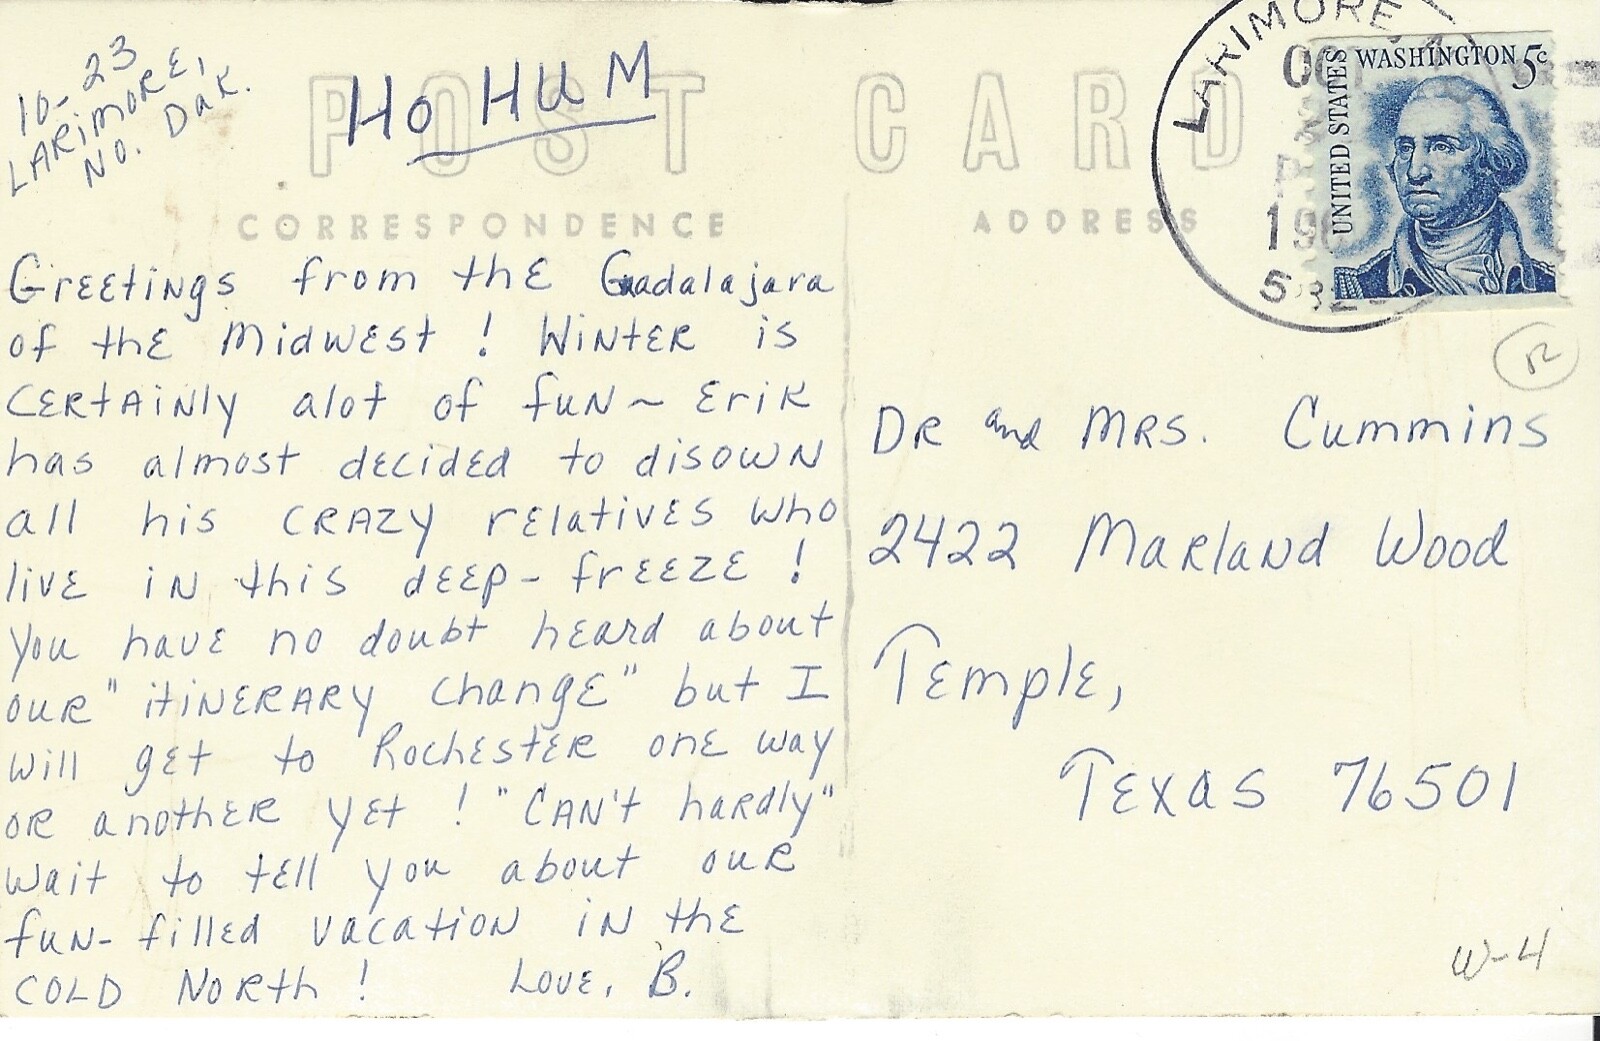 10-23
LARIMORE,
NO. DAK.
HO HUM
POST CARD
CORRESPONDENCE
ADDRESS
LARIMORE
UNITED STATES
WASHINGTON 5c
Greetings from the Guadalajara
of the Midwest! Winter is
certainly alot of fun ~ Erik
has almost decided to disown
all his crazy relatives who
live in this deep-freeze!
You have no doubt heard about
our "itinerary change" but I
will get to Rochester one way
or another yet! "Can't hardly"
wait to tell you about our
fun-filled vacation in the
COLD North! Love, B.
Dr and Mrs. Cummins
2422 Marland Wood
Temple,
Texas 76501
W-4